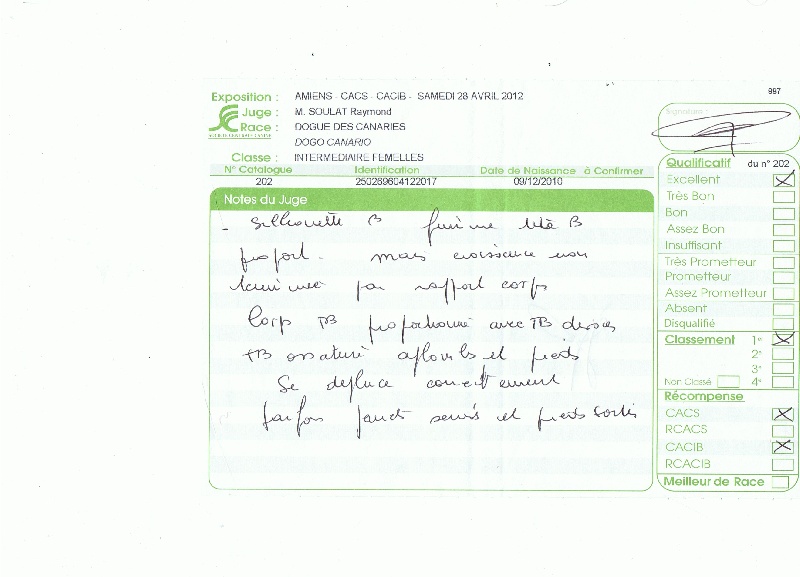 997
Exposition : AMIENS - CACS - CACIB - SAMEDI 28 AVRIL 2012
Juge : M. SOULAT Raymond
Race : DOGUE DES CANARIES
SOCIETE CENTRALE CANINE
DOGO CANARIO
Classe : INTERMEDIAIRE FEMELLES
N° Catalogue Identification Date de Naissance à Confirmer
202 250269604122017 09/12/2010
Notes du Juge
- Silhouette B tête B
proport. mais croissance non
terminée par rapport corps
Corp TB proportionné avec TB dessus
TB ossature aplombs et pieds
Se déplace correctement
parfois jarrets serrés et pieds sortis
Signature :
Qualificatif du n° 202
Excellent
Très Bon
Bon
Assez Bon
Insuffisant
Très Prometteur
Prometteur
Assez Prometteur
Absent
Disqualifié
Classement 1e
2e
3e
Non Classé 4e
Récompense
CACS
RCACS
CACIB
RCACIB
Meilleur de Race